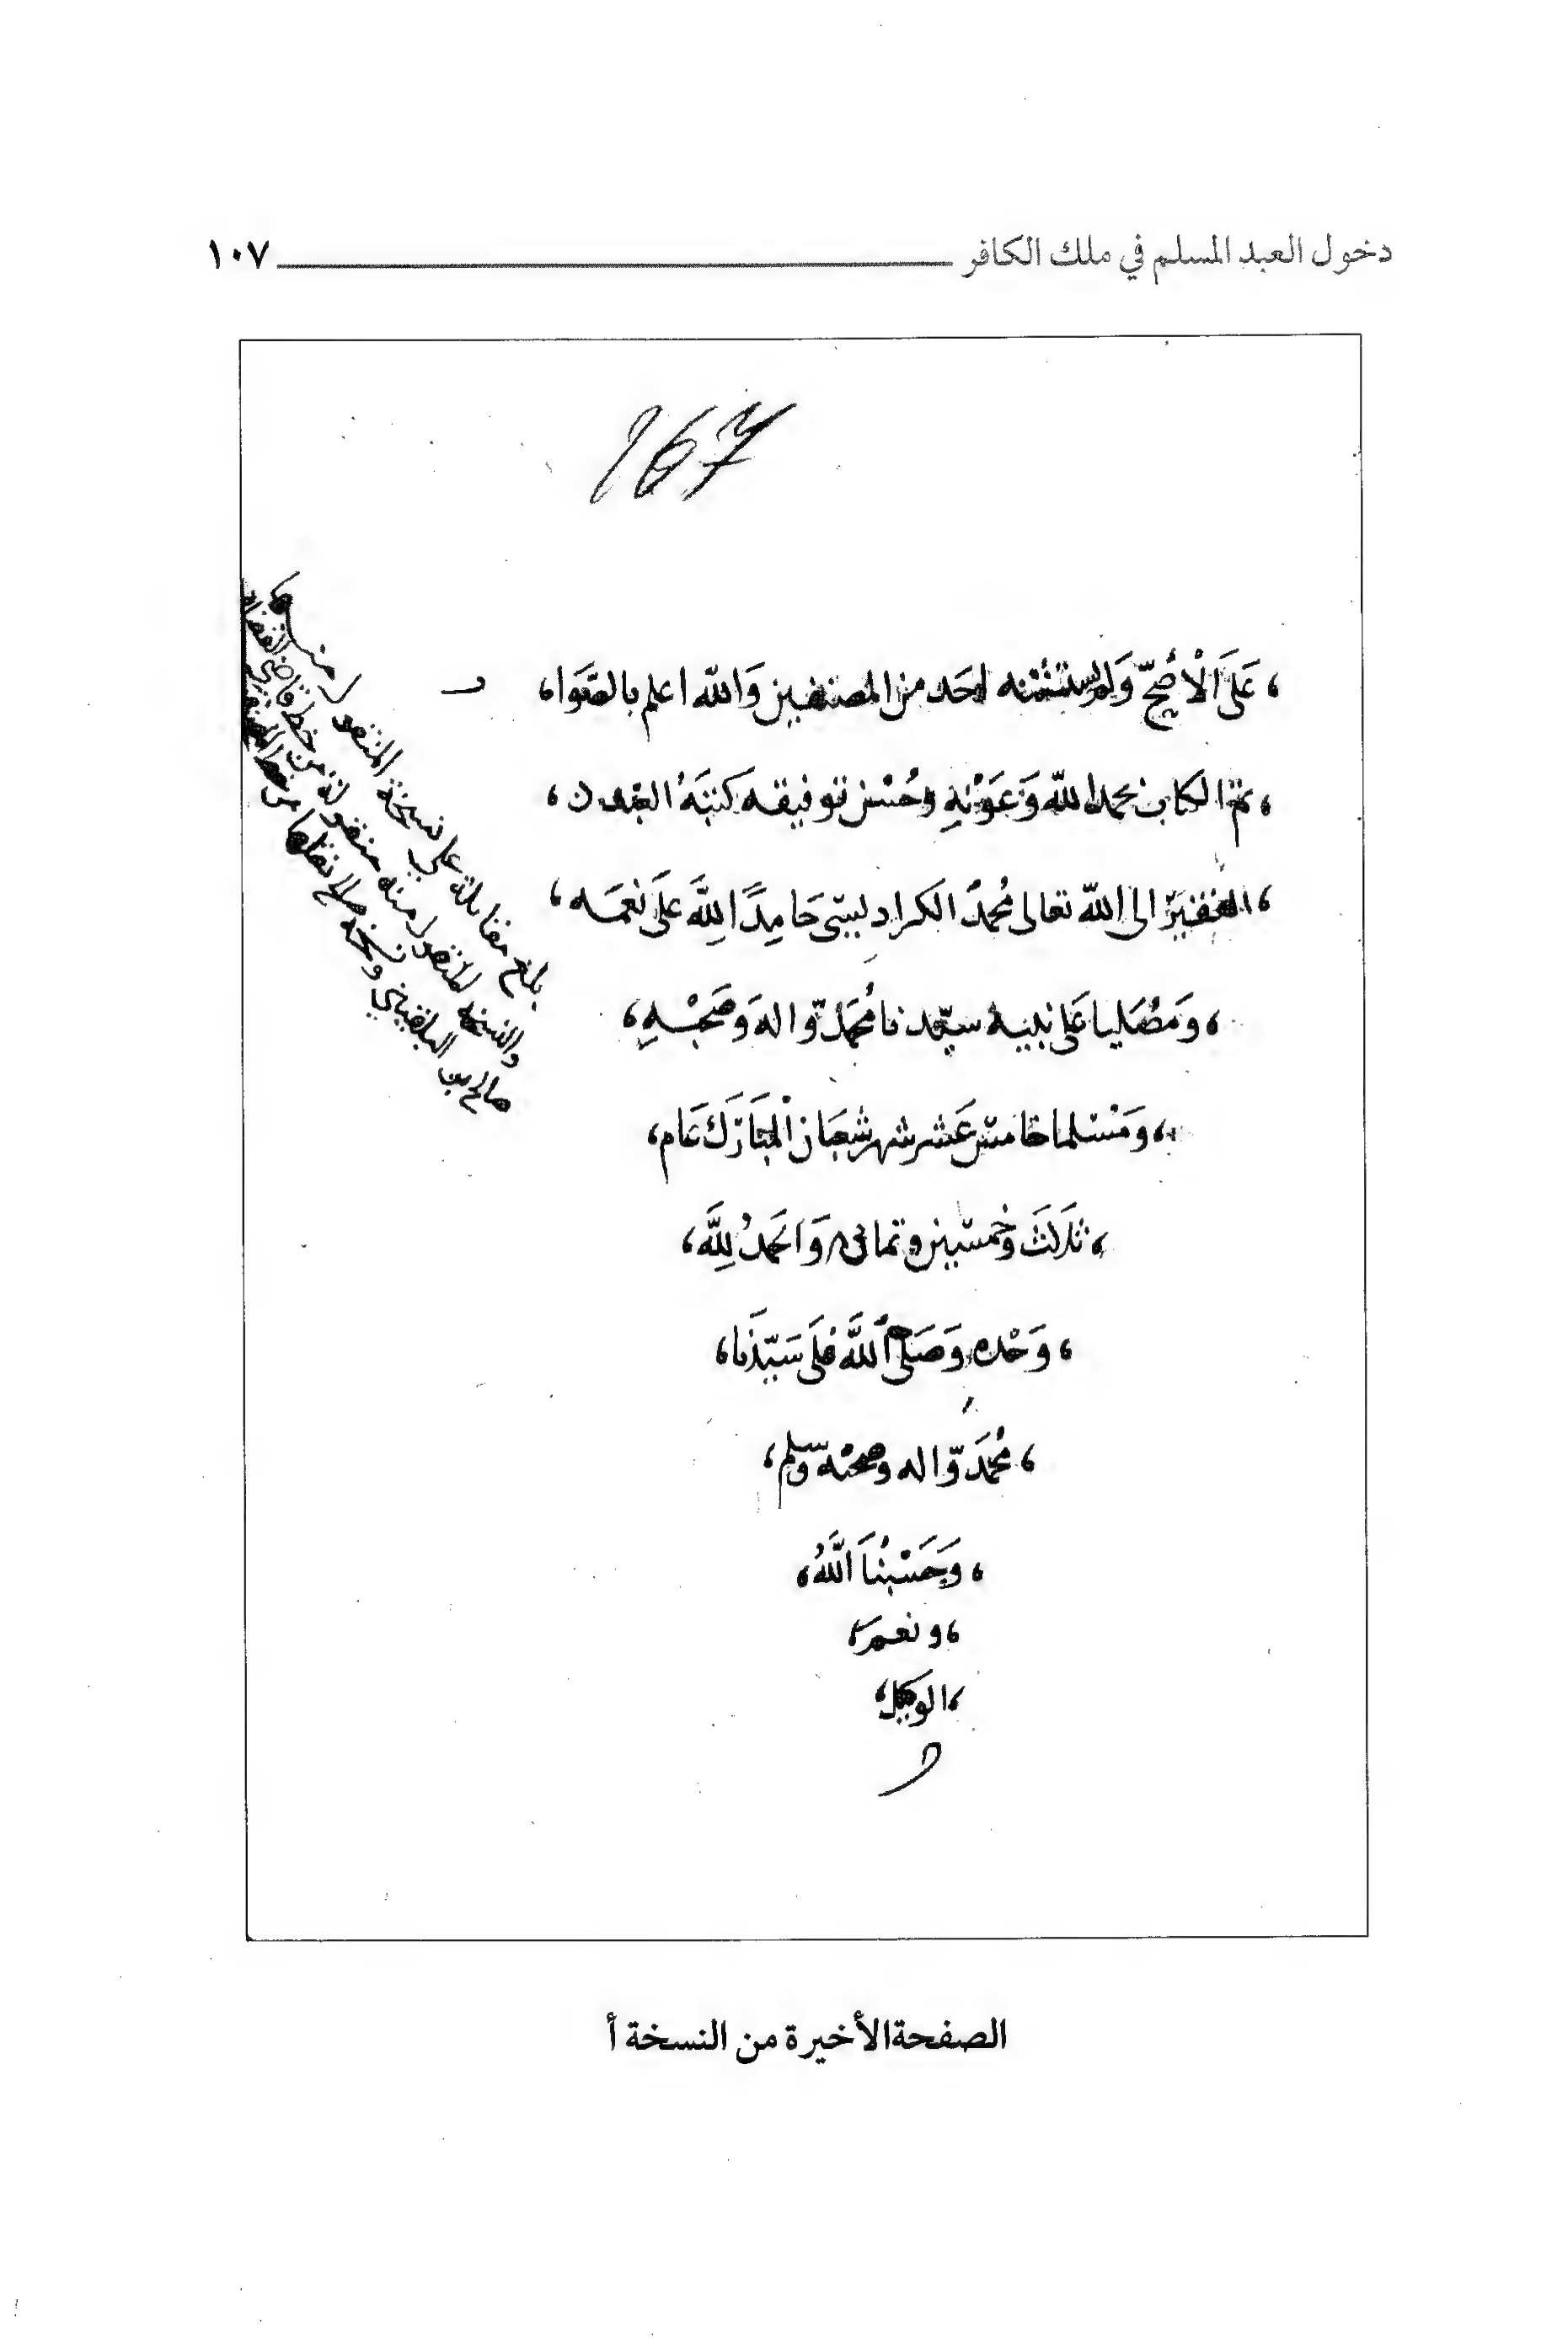 دخول العبد المسلم في ملك الكافر ١٠٧
167
، عَلَى الْأَصَحّ وَلم يستثنه احَد من المصنفين وَالله اعلم بالصَوا،
، تم الكتاب بحمد الله وَعَوْنِهِ وحُسْن توفيقه كتبَهُ العبد ن،
، الفقِير الى الله تعالى مُحمدُ الكراديسِى حَامِدًا لِلَّه عَلَى نعمَه،
، وَمصَليا عَلى نبيه سيّدنا مُحَمَّد وّاله وَصَحْبِهِ،
، ومسْلما خامس عَشر شهر شعبَان المبَارَك عَام،
، ثلَاث وخمسين وثمانى وَالحَمدُ لِلَّه،
، وَحْده وَصَلى اللَّه عَلَى سَيّدنَا،
، مُحمَد وّاله وصحبْه وسلم،
، وَحَسْبُنَا اللَّهُ،
، ونعمَ،
، الوكيل،
بلغ مقابلة على نسخة المنقول منها
والنسخة المنقول منه منقولة من خط قاضي القضاة
صالح بن البلقيني ونسخة صالح نقلها من خط المصنف
الصفحة الأخيرة من النسخة أ